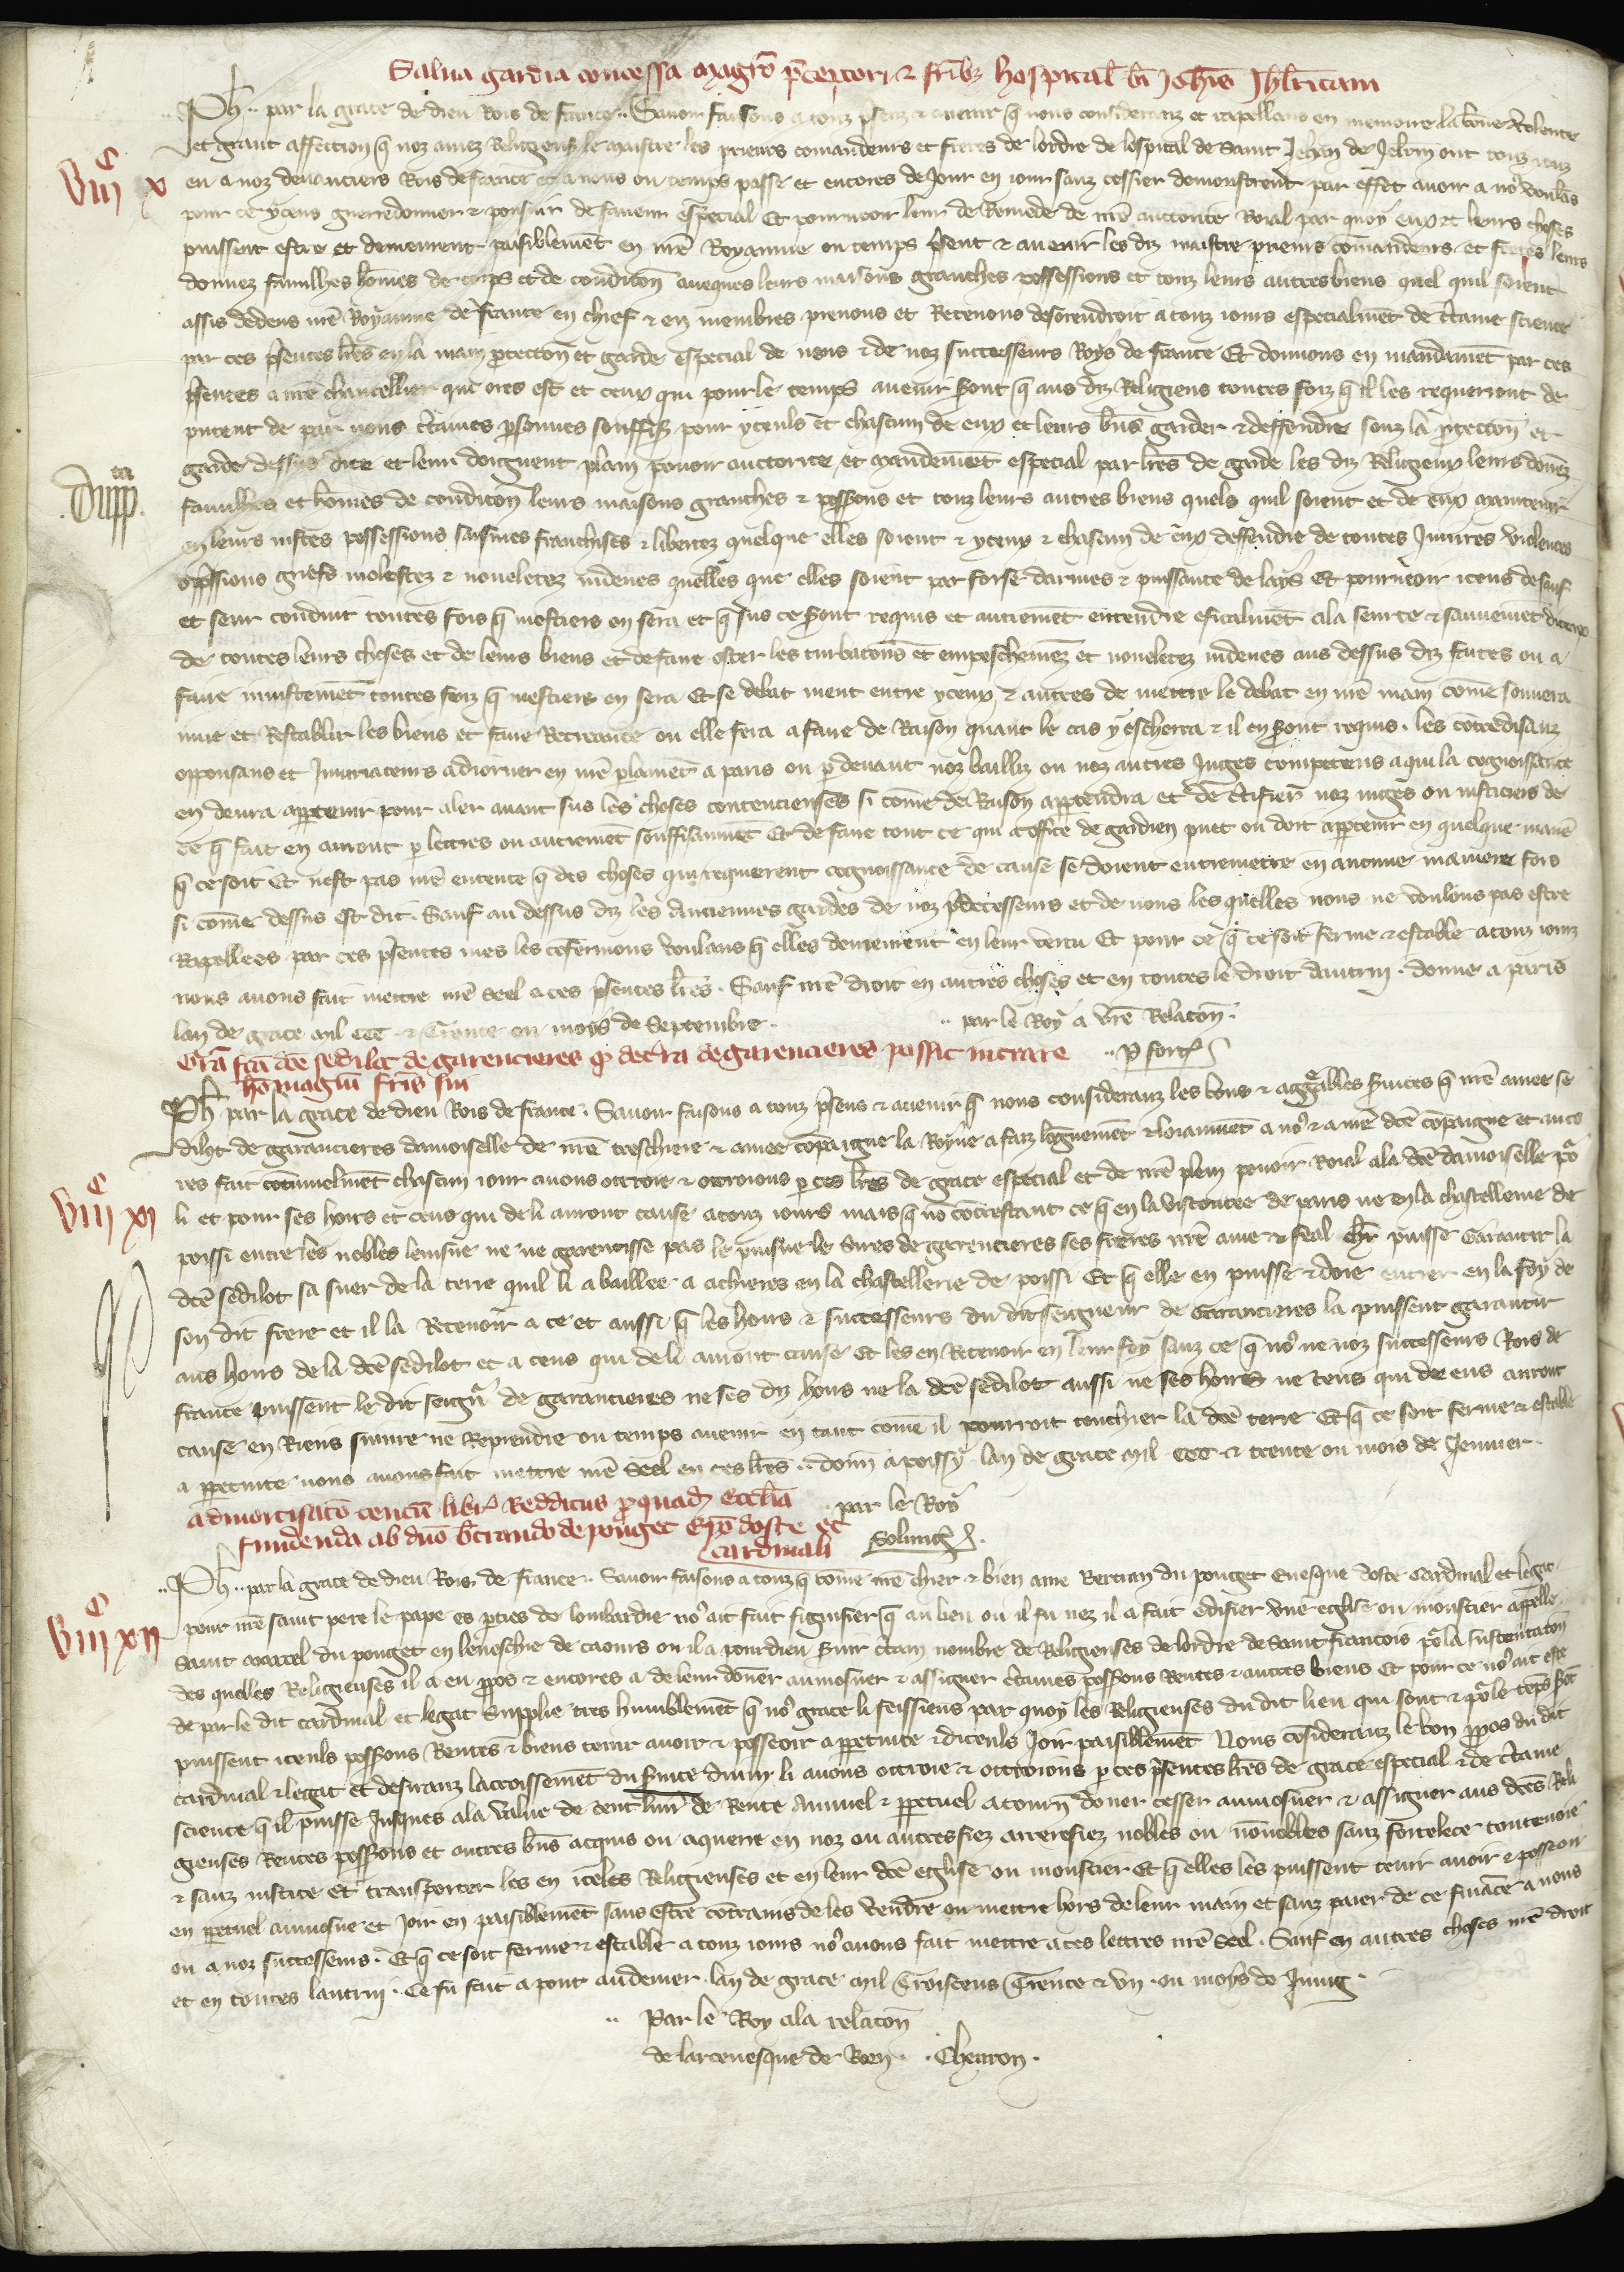 Salua gardia concessa magr̄o p̄ceptori & fr̄ibꝫ hospital̄ bī Joh̄is Jhl̄rītani
Ph̄ .. par la grace de dieu Rois de france .. Sauoir faisons a touz p̄senz & auenir q̄ nous consideranz et rapellans en memoire la bōne volente
et grant affection q̄ noz amez Religieus le maistre les prieurs comandeurs et freres de lordre de lospital de saint Jehan de Jelr̄m ont touz iours
viii c x
eu a noz deuanciers Rois de france et a nous ou temps passe et encores de Jour en iour sanz cessier demonstrent par effet auoir a no9 voulās
pour ce yceus guerredonner & poursuir de faueur especial Et pourueoir leur de Remede de nr̄e auctorite Roial par quoy eux & leurs choses
puissent estre et demeurent paisiblemēt en nr̄e Royaume ou temps p̄sent & auenir les diz maistre prieurs comandeurs et freres leurs
donnez familhes hōmes de corps et de condicōn auecques leurs maisons granches possessions et touz leurs autres biens quel quil soient
assis dedens nr̄e Royaume de france en chief & en membres prenons et Retenons desorendroit a touz iours especialmēt de c̄taine science
par ces p̄sentes lr̄es en la main p̄tectōn et garde especial de nous & de noz successeurs Roys de france Et donnons en mandamēt par ces
p̄sentes a nr̄e chancellier qui ores est et ceux qui pour le temps auenir s̄ont q̄ aus diz Religieus toutes foiz q̄ il les requerront de
putent de par nous c̄taines p̄sonnes souffis̄ pour yceuls et chascun de eux et leurs bn̄s garder & deffendre souz la p̄tectōn et
garde dessus dite et leur doignent plain pouoir auctorite et mandemēt especial par lr̄es de garde les diz Religieux leurs dōnez
familhes et hōmes de condicōn leurs maisons granches & poss̄ions et touz leurs autres biens quels quil soient et de eux maintenir
en leurs iustes possessions saisines franchises & libertez quelque elles soient & yceux & chascun de eux deffendre de toutes Iniures violences
opp̄ssions griefs molestez & noueletez indeues quelles que elles soient par forse darmes & puissance de lays Et pourueoir iceus de sauf
et seur conduit toutes fois q̄ mestiers en sera et q̄ sus ce s̄ont requis et autremēt entendre eficalmēt a la seurte & sauuemēt diceux
de toutes leurs choses et de leurs biens et de faire oster les turbacōns et empeschemēz et noueletez indeues aus dessus diz faites ou a
faire iniustemēt toutes foiz q̄ mestiers en sera Et se debat ment entre yceux & autres de mettre le debat en nr̄e main cōme souuera
inne et Restablir les biens et faire Recreance ou elle fera a faire de Raison quant le cas y escherra & il en s̄ont requis . les cōtredisanz
opposans et Iniuriateurs adiorner en nr̄e p̄lamēt a paris ou p̄ deuant noz bailliz ou noz autres Juges competens a qui la cognoissance
en deura appartenir pour aler auant sus les choses contencieuses si cōme de Raison appartendra et de c̄tifier noz iuges ou iusticiers de
ce q̄ fait en auront p̄ lettres ou autremēt souffisanmēt Et de faire tout ce qui a office de gardien puet ou doit appartenir en quelque manē
q̄ ce soit Et nest pas nr̄e entente q̄ des choses qui requierent cognoissance de cause se doient entremetre en aucune maniere fors
si cōme dessus est dit . Sauf au dessus diz les Anciennes gardes de noz p̄decesseurs et de nous les quelles nous ne voulons pas estre
Rapellees par ces p̄sentes mes les cōfermons voulans q̄ elles demeurent en leur vertu Et pour ce q̄ ce soit ferme & estable a touz iours
nous auons fait mettre nr̄e seel a ces p̄sentes lr̄es . Sauf nr̄e droit en autres choses et en toutes le droit dautrui . donne a paris
lan de grace mil ccc & Trente ou moys de Septembre . .. par le Roy a vr̄e Relacōn .
Gr̄a fc̄a dc̄e sedilot de garencieres q̄ de tr̄a de garencieres possit intrare
homagiū fr̄is sui
Ph̄ par la grace de dieu Rois de france . Sauoir faisons a touz p̄sens & auenir q̄ nous consideranz les bons & aggr̄ables s̄uices q̄ nr̄e amee se
dilot de garancieres damoiselle de nr̄e treschiere & amee cōpaigne la Royne a faiz lōguemēt & loiaumēt a no9 & a nr̄e dc̄e cōpaigne et enco
res fait cōtinuelmēt chascun iour auons ottroie & ottroions p̄ ces lr̄es de grace especial et de nr̄e plein pouoir Roial a la dc̄e damoiselle po
viii c xi
li et pour ses hoirs et ceus qui de li auront cause a touz iours mais q̄ nō cōtrestant ce q̄ en la viscontee de paris ne en la chastellenie de
poissi entre les nobles leinsne ne ne garentisse pas le puisne le sires de garencieres ses freres nr̄e ame & feal chr̄ puisse Garantir la
dc̄e sedilot sa suer de la terre quil li a baillee a achieres en la chastellerie de poissi Et q̄ elle en puisse & doie entrer en la foy de
son dit frere et il la Recenoir a ce et aussi q̄ les hoirs & successeurs du dit seigneur de Garancieres la puissent garantir
aus hoirs de la dc̄e sedilot et a ceus qui de li auront cause Et les en Receuoir en leur foy sanz ce q̄ no9 ne noz successeurs Rois de
france puissent le dit seign̄r de garancieres ne ses diz hoirs ne la dc̄e sedilot aussi ne ses hoirs ne ceus qui de eus auront
cause en Riens suiure ne Reprendre ou temps auenir en tant cōme il pourroit touchier la dc̄e terre Et q̄ ce soit ferme & estable
a ppetuite nous auons fait mettre nr̄e seel en ces lr̄es .. donn̄ a poissy lan de grace mil ccc & trente ou mois de Jenuier .
admortisacō centū libr̄ Redditus p̄ quadā eccl̄ia
par le Roy
fundenda ab dn̄o b̄trando de pouget Ep̄o doste &
cardinali
viii c xii
Ph̄ .. par la grace de dieu Rois de france .. Sauoir faisons a touz q̄ cōme nr̄e chier & bien ame Bertran du pouget Euesque doste Cardinal et legat
pour nr̄e saint pere le pape es p̄ties de lombardie no9 ait fait signifier q̄ au lieu ou il fu nez il a fait edifier vne eglise ou moustier appelle
saint marcel du pouget en leueschie de caours ou il a pour dieu s̄uir c̄tain nombre de Religieuses de lordre de saint francois po la sustentatōn
des quelles Religieuses il a eu ppos & encores a de leur dōner aumosner & assigner c̄taines poss̄ions Rentes & autres biens Et pour ce no9 ait este
de par le dit cardinal et legat Supplie tres humblemēt q̄ no9 grace li feissiens par quoy les Religieuses du dit lieu qui sont & po le tēps s̄ōt
puissent iceuls poss̄ions Rentes & biens tenir auoir & posseoir a ppetuite & diceuls Joir paisiblemēt Nous cōsideranz le bon ppos du dit
cardinal & legat et desiranz lacroissemēt du s̄uice diuin li auons ottroie & ottroions p̄ ces p̄sentes lr̄es de grace especial & de c̄taine
science q̄ il puisse Jusques a la value de cent liur̄ de Rente Annuel & ppetuel a tourn̄ dōner cesser aumosner & assigner aus dc̄es Reli
gieuses Rentes poss̄ions et autres bn̄s acquis ou aquerre en noz ou autres fiez arrerefiez nobles ou nōnobles sanz fortelece contenoie
& sanz iustice Et transporter les en iceles Religieuses et en leur dc̄e eglise ou moustier Et q̄ elles les puissent tenir auoir & posseoir
en ppetuel aumosne et Joir en paisiblemēt sans estre cōtrains de les vendre ou mettre hors de leur main et sanz paier de ce fināce a nous
ou a noz successeurs . Et q̄ ce soit ferme & estable a touz iours no9 auons fait mettre a ces lettres nr̄e seel . Sauf en autres choses nr̄e droit
et en toutes lautrui . Ce fu fait a pont audemer . lan de grace mil Troiscens Trente & vn . ou moys de Juing .
.. Par le Roy a la relacōn
de larceuesque de Roen . . Cheuron .